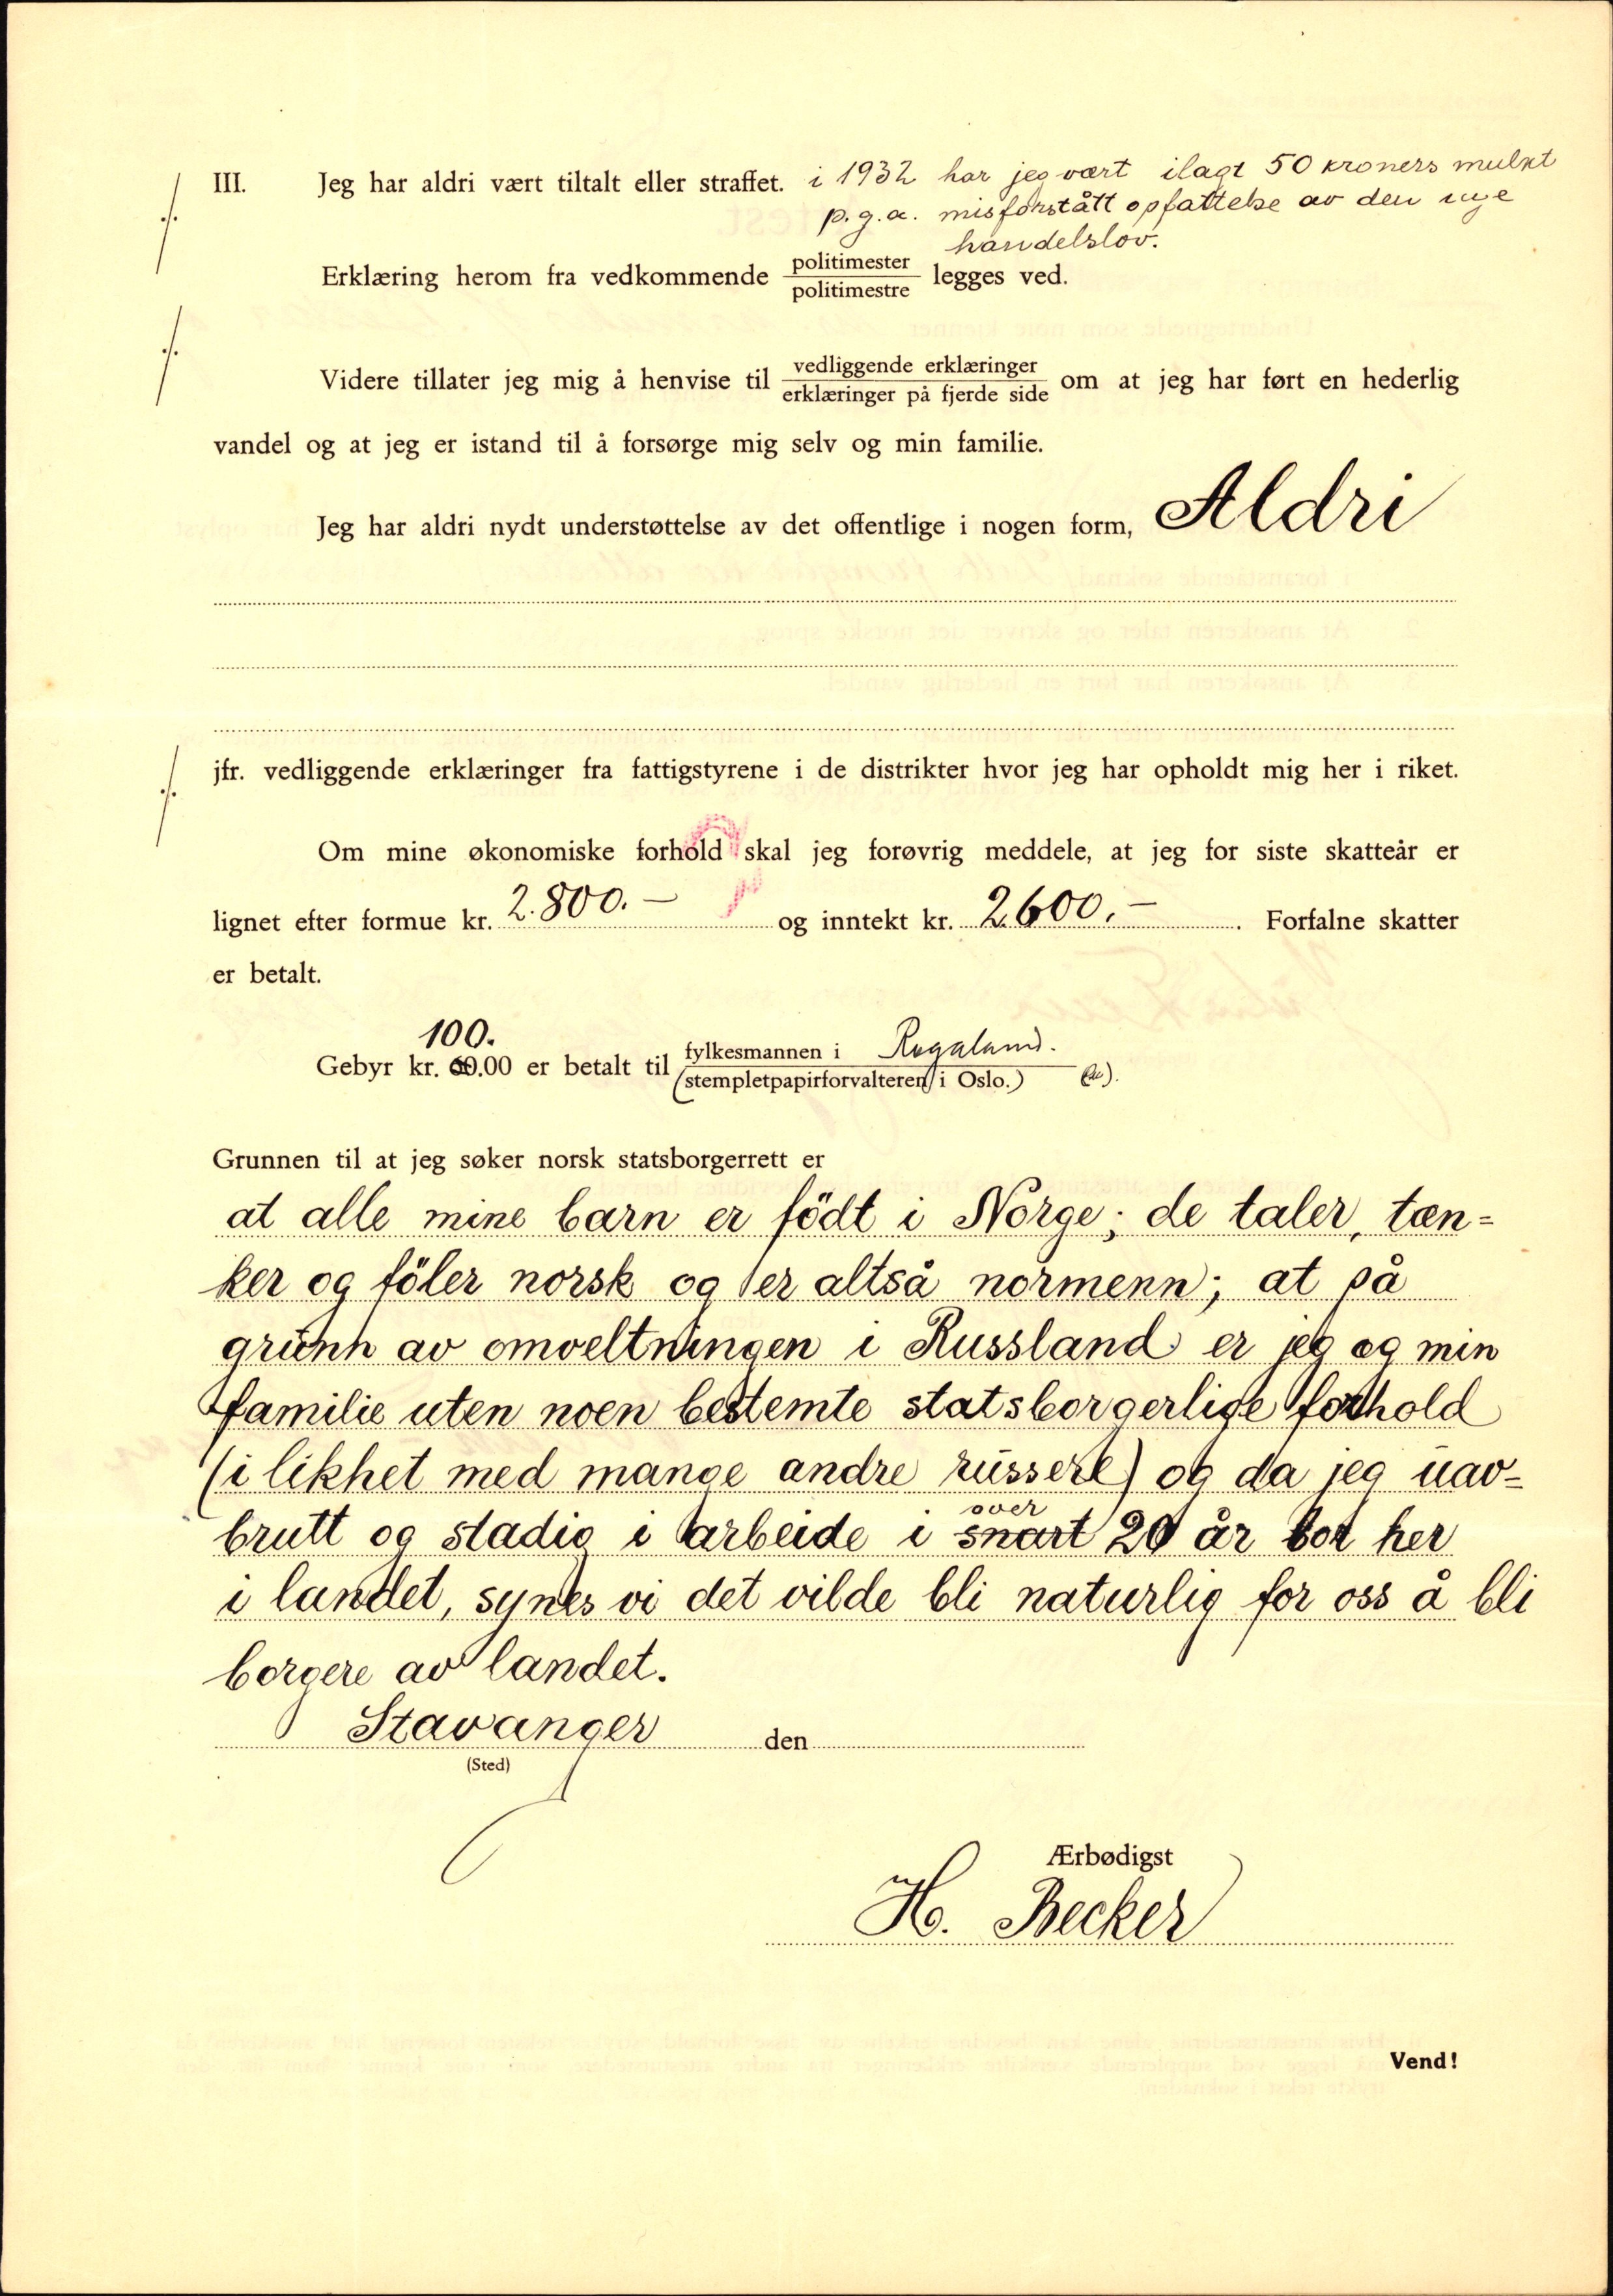 III. Jeg har aldri vært tiltalt eller straffet. i 1932 har jeg vært ilagt 50 kroners mulkt
p.g.a. misforstått opfattelse av den nye
handelslov.
Erklæring herom fra vedkommende politimester
politimestre legges ved.
Videre tillater jeg mig å henvise til vedliggende erklæringer
erklæringer på fjerde side om at jeg har ført en hederlig
vandel og at jeg er istand til å forsørge mig selv og min familie.
Jeg har aldri nydt understøttelse av det offentlige i nogen form, Aldri
jfr. vedliggende erklæringer fra fattigstyrene i de distrikter hvor jeg har opholdt mig her i riket.
Om mine økonomiske forhold skal jeg forøvrig meddele, at jeg for siste skatteår er
lignet efter formue kr. 2.800.— og inntekt kr. 2600.— Forfalne skatter
er betalt.
100.
Gebyr kr. 60.00 er betalt til fylkesmannen i Rogaland.
(stempletpapirforvalteren i Oslo.)
Grunnen til at jeg søker norsk statsborgerrett er
at alle mine barn er födt i Norge; de taler, tæn=
ker og föler norsk og er altså normenn; at på
grunn av omveltningen i Russland er jeg og min
familie uten noen bestemte statsborgerlige forhold
(i likhet med mange andre russere) og da jeg uav=
over
brutt og stadig i arbeide i snart 20 år bor her
i landet, synes vi det vilde bli naturlig for oss å bli
borgere av landet.
Stavanger den
(Sted)
Ærbødigst
H. Becker
Vend!